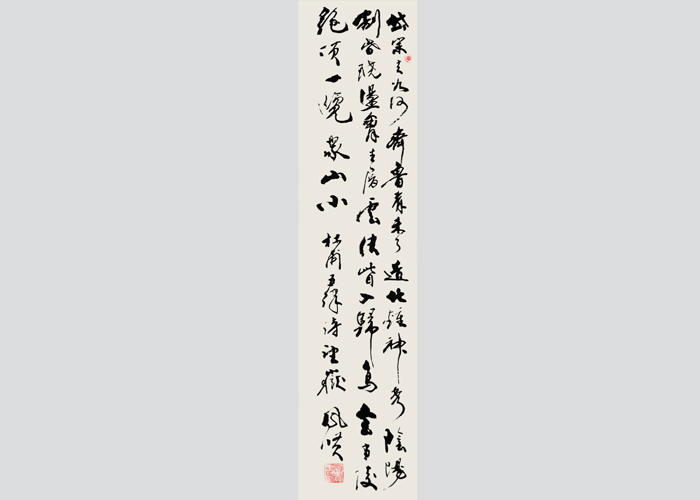 岱宗夫如何齊魯青未了造化鍾神秀陰陽
割昏曉盪胸生層雲決眥入歸鳥會當凌
絕頂一覽眾山小杜甫五律詩望嶽